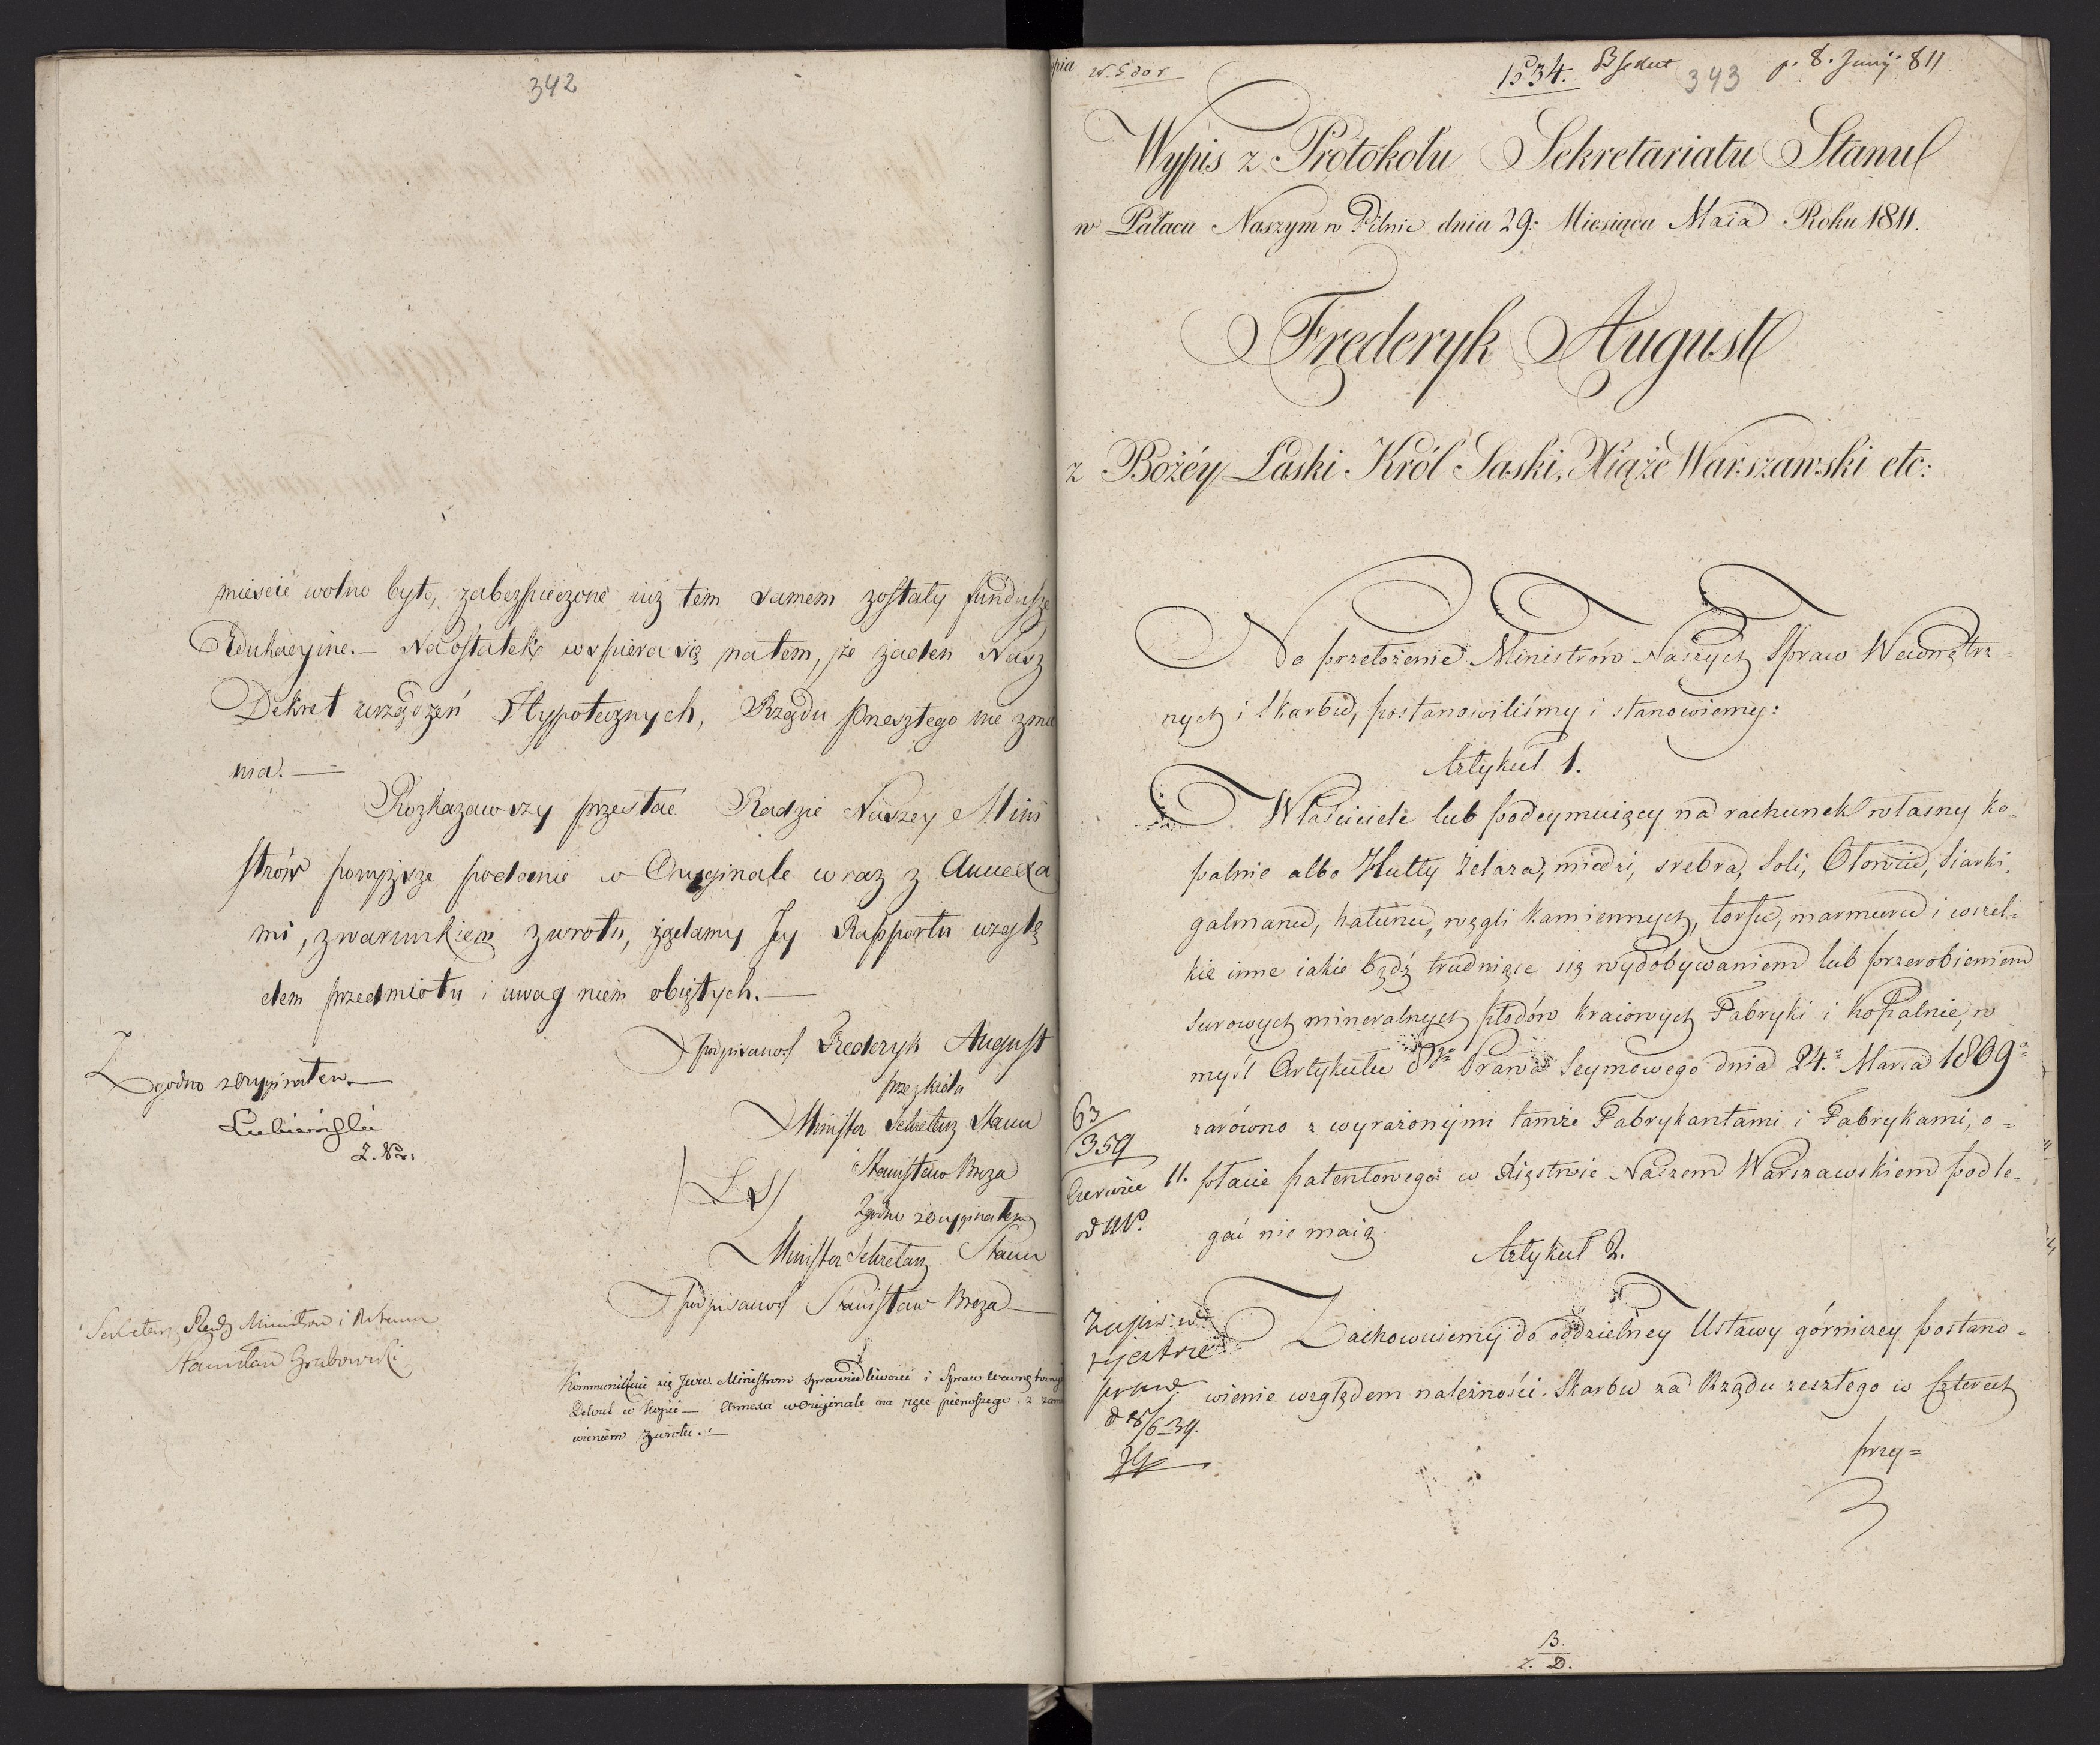 342
mieście wolno było, zabezpieczone iuż tem samem zostały fundusze
Edukacyine. — Naostatek wspiera się na tem, że żaden Nasz
Dekret urządzeń Hypotecznych, Rządu przeszłego nie zmie
nia. —
Rozkazawszy przesłać Radzie Naszey Mini
strów powyższe podanie w Oryginale wraz z Annexa
mi, z warunkiem zwrotu, żądamy Jey Rapportu wzglę
dem przedmiotu i uwag niem obiętych. —
podpisano Frederyk August
przez Króla
Minister Sekretarz Stanu
Stanisław Breza
(L S)
Zgodno z oryginałem
Minister Sekretarz Stanu
podpisano Stanisław Breza —
Zgodno z oryginałem —
Lubieński
Sekretarz Rady Ministrów i
Stanisław Grabowski
Kommunikuie się Jww. Ministrom Sprawiedliwości i Spraw Wewnętrznych
Dekret w kopii — Annexa w Originale na ręce pierwszego, z zamó
wieniem zwrotu. —
1534. 343 p. 8. Junij 811
Wypis z Protokołu Sekretariatu Stanu
w Pałacu Naszym w Pilnic dnia 29. Miesiąca Maia Roku 1811.
Frederyk August
z Bożéy Łaski Król Saski, Xiąże Warszawski etc:
Na przełożenie Ministrów Naszych Spraw Wewnętrz=
nych i Skarbu, postanowiliśmy i stanowiemy:
Artykuł 1.
Właściciele lub podeymuiący na rachunek własny ko=
palnie albo Hutty żelaza, miedzi, srebra, Soli, Ołowiu, Siarki,
galmanu, hałunu, węgli kamiennych, torfu, marmuru i wszel=
kie inne iakie bądź trudniące się wydobywaniem lub przerobieniem
surowych mineralnych płodów kraiowych Fabryki i Kopalnie, w
myśl Artykułu Prawa Seymowego dnia 24. Marca 1809
zarówno z wyrażonymi tamże Fabrykantami i Fabrykami, o=
płacie patentowego w Xięstwie Naszem Warszawskiem podle=
gać nie maią.
Artykuł 2.
Zachowuiemy do oddzielney Ustawy górniczey postano=
wienie względem należności Skarbu za Rządu zeszłego w czterech
przy=
63/359
Czerwiec 11.
Zapis: w
rejestrze
B.
z. D.